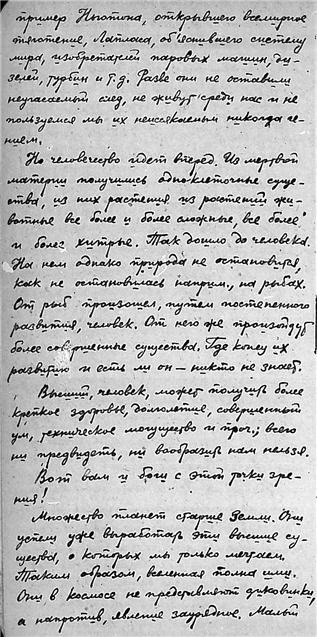 пример Ньютона, открывшего всемирное
тяготение, Лапласа, об'яснившего систему
мира, изобретателей паровых машин, ди-
зелей, турбин и т.д. Разве они не оставили
неугасаемый след, не живут среди нас и не
пользуемся мы их неиссякаемым никогда ге-
нием.
Но человечество идет вперед. Из мертвой
материи получились одноклеточные суще-
ства, из них растения из растений жи-
вотные все более и более сложные, все более
и более хитрые. Так дошло до человека.
На нем однако природа не остановится,
как не остановилась наприм., на рыбах.
От рыб произошел, путем постепенного
развития, человек. От него же произойдут
более совершенные существа. Где конец их
развитию и есть ли он – никто не знает.
Высший, человек, может получить более
крепкое здоровье, долголетие, совершенный
ум, техническое могущество и проч.; всего
ни предвидеть, ни вообразить нам нельзя.
Вот вам и боги с этой точки зре-
ния!
Множество планет старше Земли. Они
успели уже выработать эти высшие су-
щества, о которых мы только мечтаем.
Таким образом, вселенная полна ими.
Они в космосе не представляют диковинки,
а напротив, явление заурядное. Малый